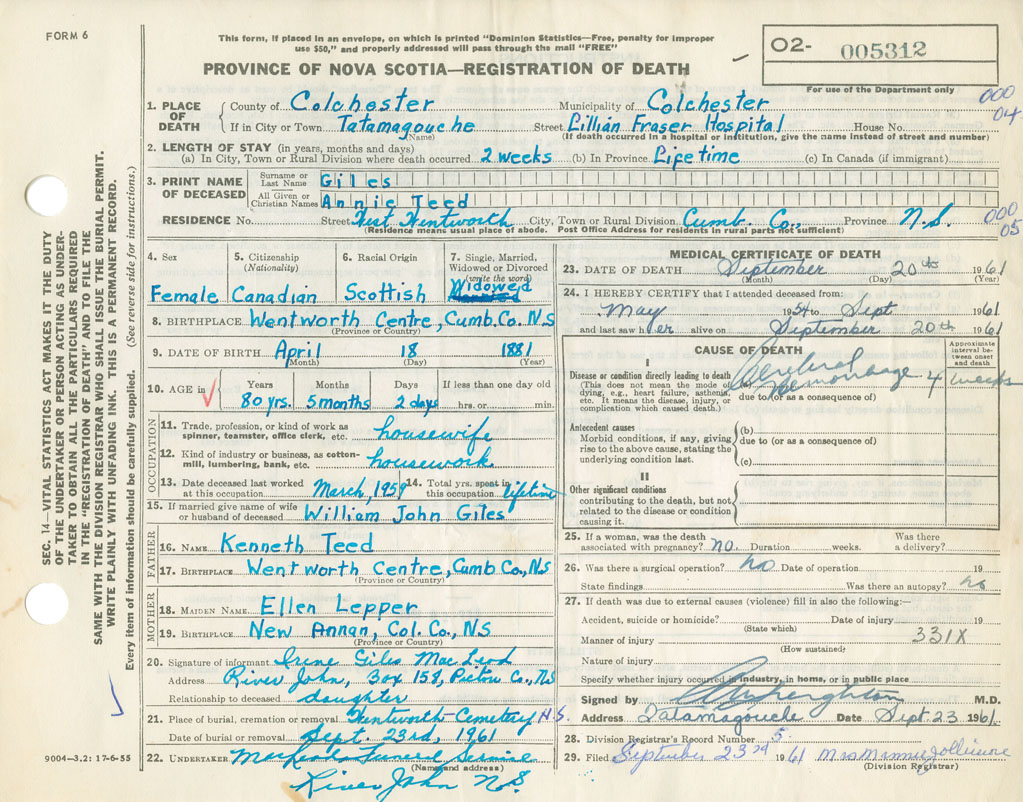 FORM 6
This form, if placed in an envelope, on which is printed "Dominion Statistics—Free, penalty for improper
use $50," and properly addressed will pass through the mail "FREE"
PROVINCE OF NOVA SCOTIA—REGISTRATION OF DEATH
02- 005312
For use of the Department only
000
04
1. PLACE OF DEATH
County of Colchester Municipality of Colchester
If in City or Town Tatamagouche Street Lillian Fraser Hospital House No.
(Name) (If death occurred in a hospital or institution, give the name instead of street and number)
2. LENGTH OF STAY (in years, months and days)
(a) In City, Town or Rural Division where death occurred 2 weeks (b) In Province Lifetime (c) In Canada (if immigrant)
3. PRINT NAME OF DECEASED
Surname or Last Name Giles
All Given or Christian Names Annie Teed
RESIDENCE No. Street West Wentworth City, Town or Rural Division Cumb. Co., Province N.S.
000
05
(Residence means usual place of abode. Post Office Address for residents in rural parts not sufficient)
4. Sex 5. Citizenship (Nationality) 6. Racial Origin 7. Single, Married, Widowed or Divorced (write the word)
Female Canadian Scottish Widowed
8. BIRTHPLACE Wentworth Centre, Cumb. Co. N.S
(Province or Country)
9. DATE OF BIRTH April 18 1881
(Month) (Day) (Year)
10. AGE in Years Months Days If less than one day old
80 yrs. 5 months 2 days hrs. or min.
OCCUPATION
11. Trade, profession, or kind of work as spinner, teamster, office clerk, etc. housewife
12. Kind of industry or business, as cotton-mill, lumbering, bank, etc. housework
13. Date deceased last worked at this occupation March, 1959 14. Total yrs. spent in this occupation lifetime
15. If married give name of wife or husband of deceased William John Giles
FATHER
16. NAME Kenneth Teed
17. BIRTHPLACE Wentworth Centre, Cumb Co., N.S
(Province or Country)
MOTHER
18. MAIDEN NAME Ellen Lepper
19. BIRTHPLACE New Annan, Col. Co., N.S
(Province or Country)
20. Signature of informant Irene Giles MacLeod
Address River John, Box 158, Pictou Co., N.S
Relationship to deceased daughter
21. Place of burial, cremation or removal Wentworth-Cemetery N.S.
Date of burial or removal Sept. 23rd, 1961
22. UNDERTAKER Funeral Service
(Name and address)
River John N.S.
MEDICAL CERTIFICATE OF DEATH
23. DATE OF DEATH September 20th 1961
(Month) (Day) (Year)
24. I HEREBY CERTIFY that I attended deceased from:
May 1954 to Sept 1961
and last saw her alive on September 20th 1961
CAUSE OF DEATH
Approximate interval between onset and death
I
Disease or condition directly leading to death
(This does not mean the mode of dying, e.g., heart failure, asthenia, etc. It means the disease, injury, or complication which caused death.)
(a) Cerebral Hemorrhage 4 weeks
due to (or as a consequence of)
Antecedent causes
Morbid conditions, if any, giving rise to the above cause, stating the underlying condition last.
(b)
due to (or as a consequence of)
(c)
II
Other significant conditions
contributing to the death, but not related to the disease or condition causing it.
25. If a woman, was the death associated with pregnancy? no. Duration weeks. Was there a delivery?
26. Was there a surgical operation? no Date of operation 19
State findings Was there an autopsy? no
27. If death was due to external causes (violence) fill in also the following:—
Accident, suicide or homicide? Date of injury 19
(State which)
Manner of injury 331X
(How sustained)
Nature of injury
Specify whether injury occurred in industry, in home, or in public place
Signed by M.D.
Address Tatamagouche Date Sept. 23 1961
28. Division Registrar's Record Number 5
29. Filed September 23rd 1961 Mrs
(Division Registrar)
SEC. 14—VITAL STATISTICS ACT MAKES IT THE DUTY
OF THE UNDERTAKER OR PERSON ACTING AS UNDER-
TAKER TO OBTAIN ALL THE PARTICULARS REQUIRED
IN THE "REGISTRATION OF DEATH" AND TO FILE THE
SAME WITH THE DIVISION REGISTRAR WHO SHALL ISSUE THE BURIAL PERMIT.
WRITE PLAINLY WITH UNFADING INK. THIS IS A PERMANENT RECORD.
Every item of information should be carefully supplied. (See reverse side for instructions.)
9004—3.2: 17-6-55